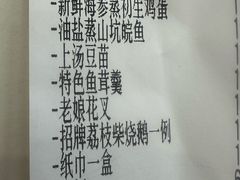 -新鲜海参蒸初生鸡蛋
-油盐蒸山坑鲩鱼
-上汤豆苗
-特色鱼茸羹
-老娘花叉
-招牌荔枝柴烧鹅一例
-纸巾一盒